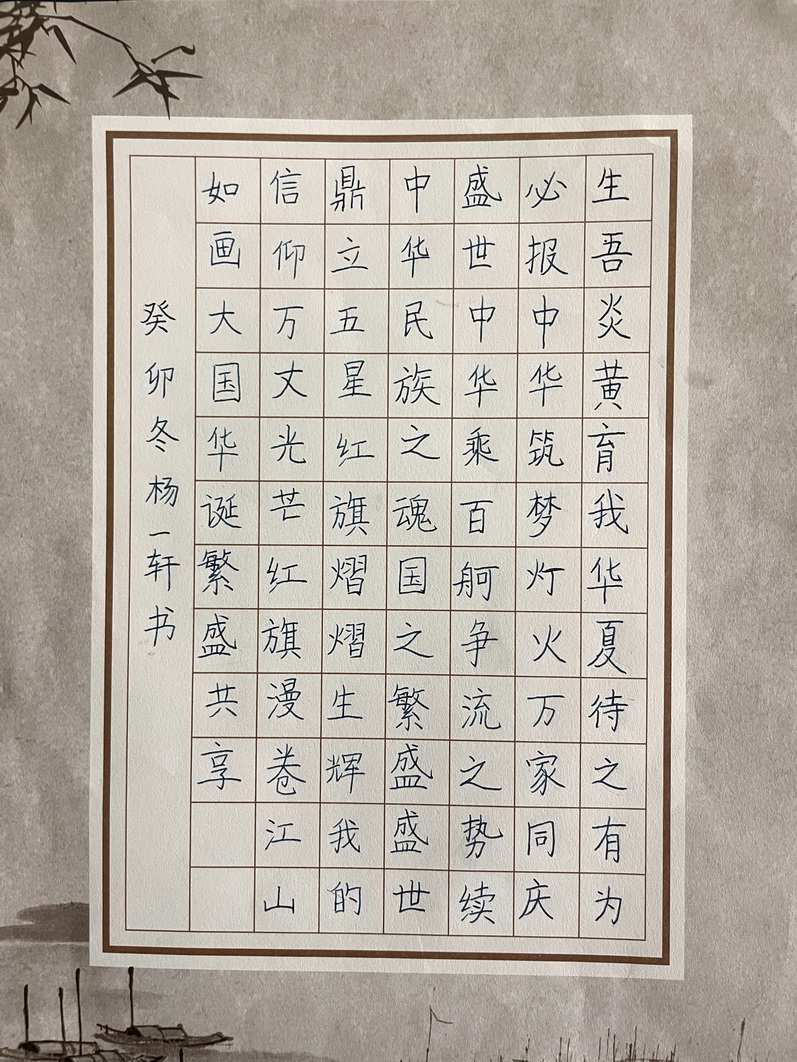 生吾炎黄育我华夏待之有为
必报中华筑梦灯火万家同庆
盛世中华乘百舸争流之势续
中华民族之魂国之繁盛盛世
鼎立五星红旗熠熠生辉我的
信仰万丈光芒红旗漫卷江山
如画大国华诞繁盛共享
癸卯冬杨一轩书